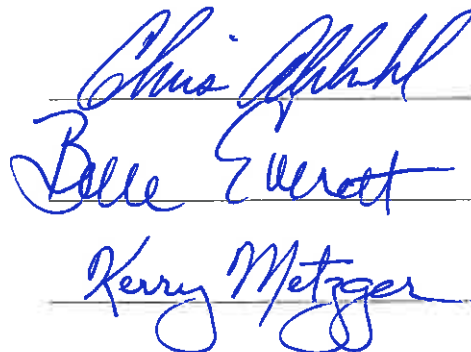 Chris
Belle Everett
Kerry Metzger